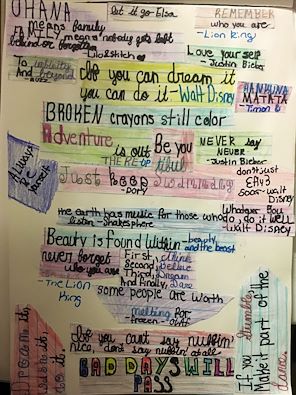 OHANA
means family
family means nobody gets left
behind or forgotten
-Lilo & Stitch
let it go Elsa
REMEMBER
who you are
-Lion king
Love yourself
-Justin Bieber
To infinity
and beyond
If you can dream it
you can do it -Walt Disney
HAKUNA
MATATA
BROKEN crayons still color
Adventure
is out
THERE
Be you
NEVER say
NEVER
-Justin Bieber
Just keep swimming
-Dory
don't just
soar -walt
Disney
the earth has music for those who
listen -Shakespeare
Whatever you
do, do it well
-Walt Disney
Beauty is found within -beauty
and the beast
never forget
who you are
-The Lion
King
First, think
Second, Believe
Third, Dream
And Finally, Dare
some people are worth
melting for
Frozen -Olaf
If you can't say nothin'
nice, don't say nothin' at all
BAD DAYS WILL
PASS
If you stumble,
Make it part of the
dance